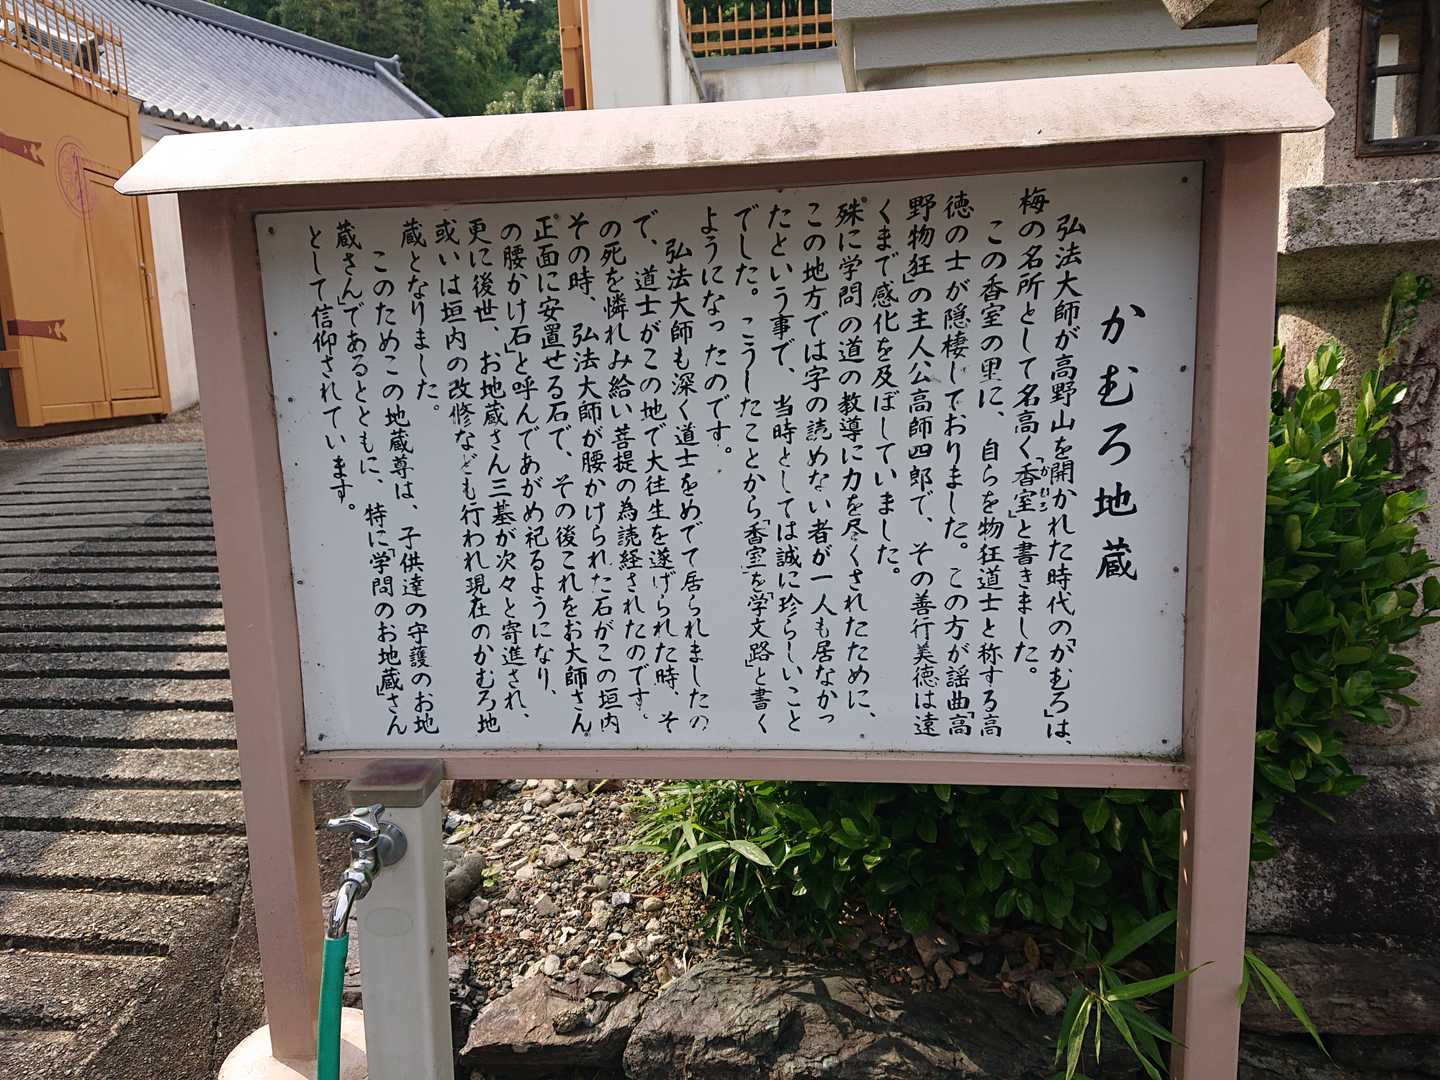 かむろ地蔵
弘法大師が高野山を開かれた時代の「かむろ」は、
梅の名所として名高く「香室」と書きました。
かむろ
この香室の里に、自らを物狂道士と称する高
徳の士が隠棲しておりました。この方が謡曲「高
野物狂」の主人公高師四郎で、その善行美徳は遠
くまで感化を及ぼしていました。
殊に学問の道の教導に力を尽くされたために、
この地方では字の読めない者が一人も居なかっ
たという事で、当時としては誠に珍らしいこと
でした。こうしたことから「香室」を「学文路」と書く
ようになったのです。
弘法大師も深く道士をめでて居られましたの
で、道士がこの地で大往生を遂げられた時、そ
の死を憐れみ給い菩提の為読経されたのです。
その時、弘法大師が腰かけられた石がこの垣内
正面に安置せる石で、その後これをお大師さん
の腰かけ石」と呼んであがめ祀るようになり、
更に後世、お地蔵さん三基が次々と寄進され、
或いは垣内の改修なども行われ現在のかむろ地
蔵となりました。
このためこの地蔵尊は、子供達の守護のお地
蔵さん」であるとともに、特に「学問のお地蔵」さん
として信仰されています。